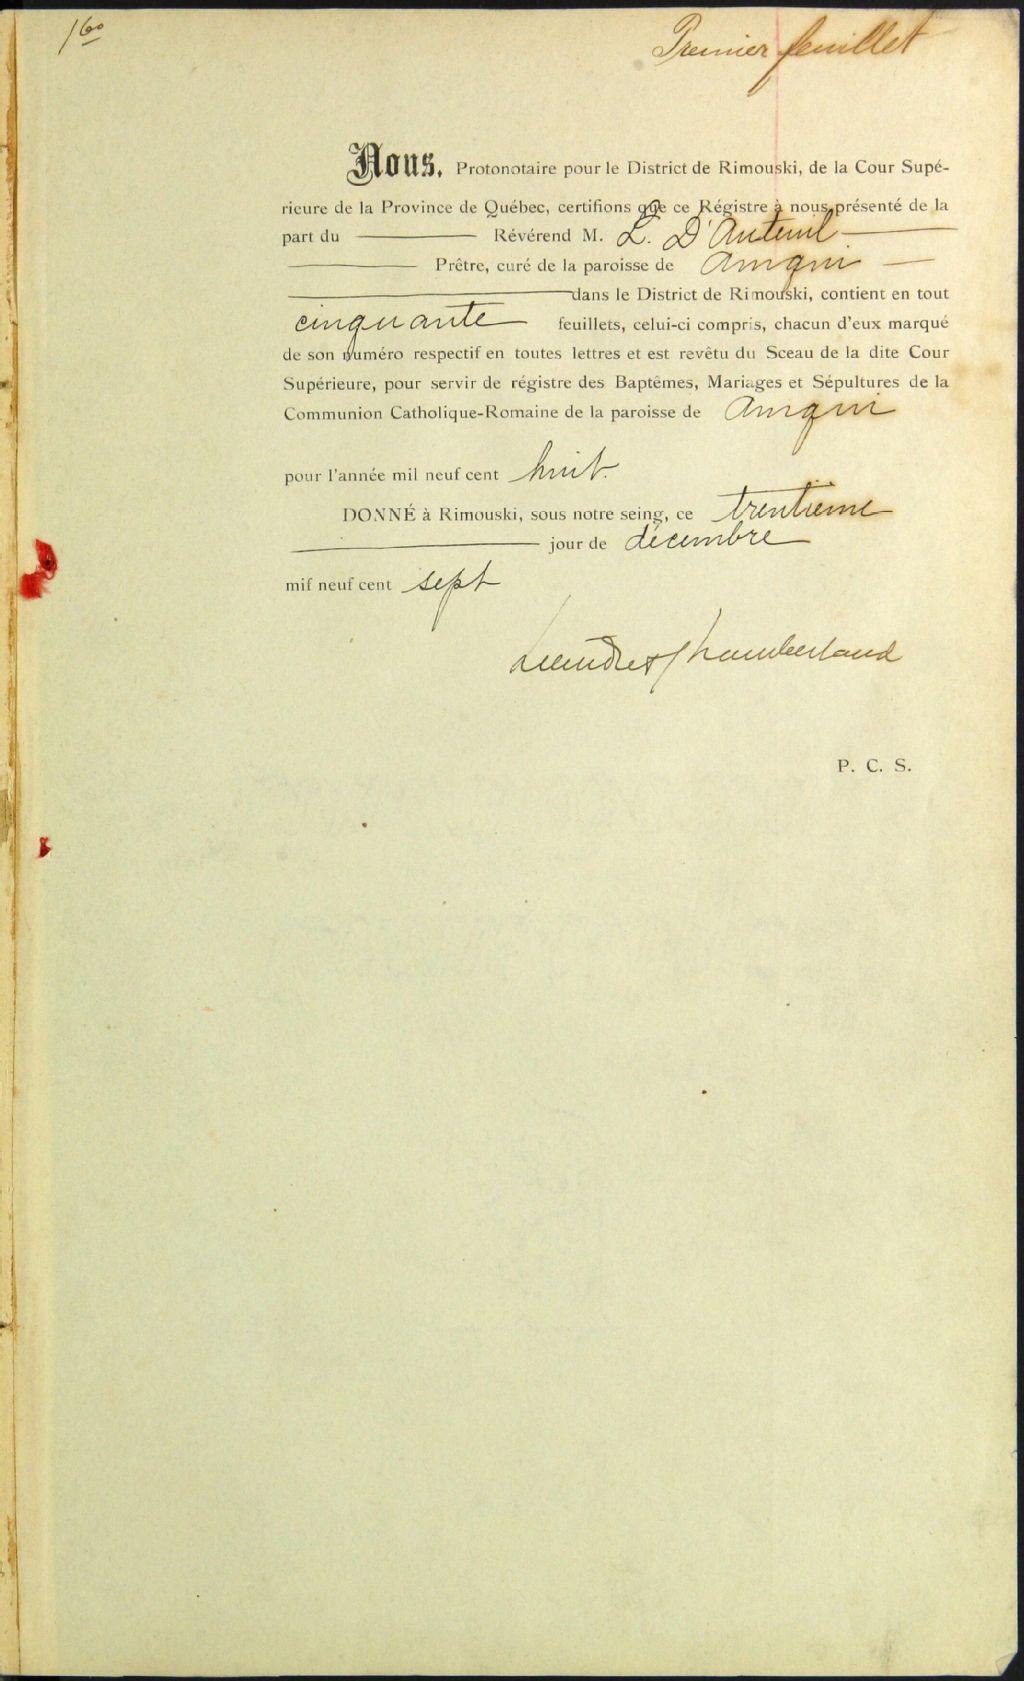 1<sup>60</sup>
Premier feuillet
Nous, Protonotaire pour le District de Rimouski, de la Cour Supé-
rieure de la Province de Québec, certifions que ce Régistre à nous présenté de la
part du Révérend M. L. D'Auteuil
Prêtre, curé de la paroisse de Amqui
dans le District de Rimouski, contient en tout
cinquante feuillets, celui-ci compris, chacun d'eux marqué
de son numéro respectif en toutes lettres et est revêtu du Sceau de la dite Cour
Supérieure, pour servir de régistre des Baptêmes, Mariages et Sépultures de la
Communion Catholique-Romaine de la paroisse de Amqui
pour l'année mil neuf cent huit.
DONNÉ à Rimouski, sous notre seing, ce trentième
jour de décembre
mil neuf cent sept
Chamberland
P. C. S.